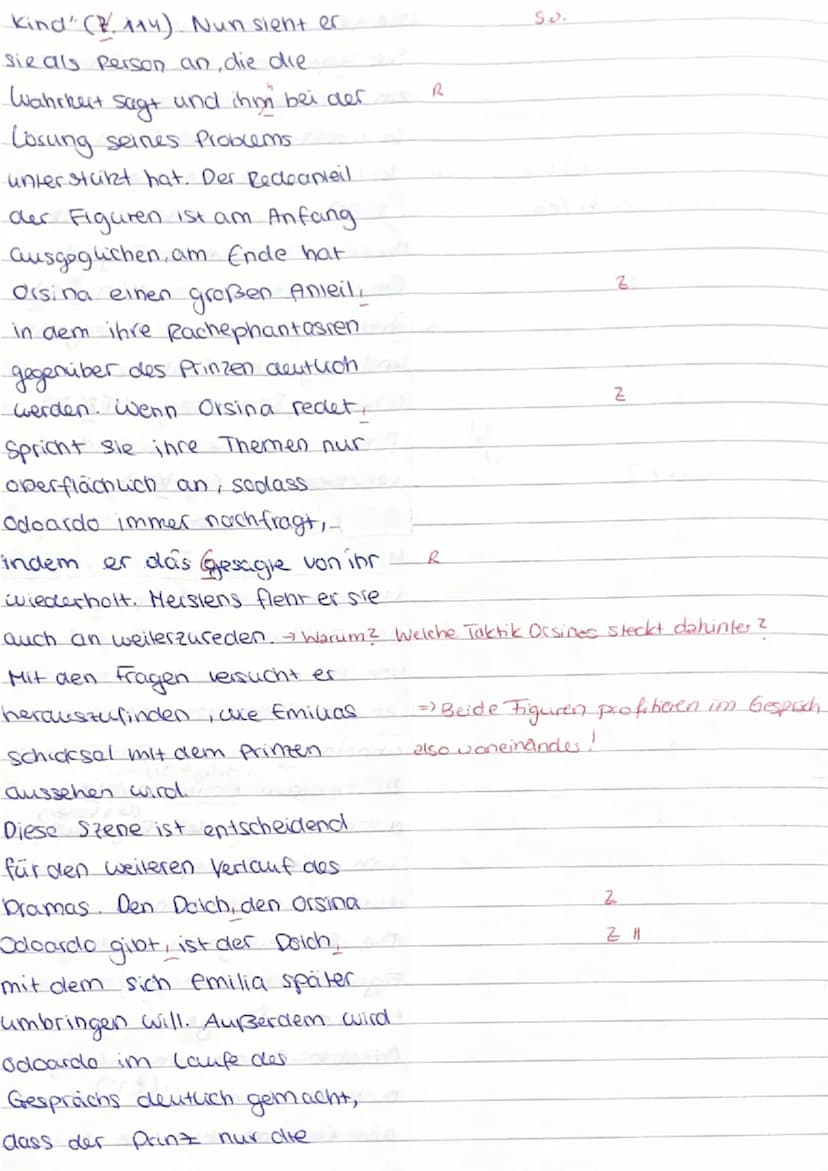 Kind" (Z. 114). Nun sieht er so.
sie als Person an, die die
Wahrheit sagt und ihm bei der R
Lösung seines Problems
unterstützt hat. Der Redeanteil
der Figuren ist am Anfang
ausgeglichen, am Ende hat
Orsina einen großen Anteil, Z
in dem ihre Rachephantasien
gegenüber des Prinzen deutlich
werden. Wenn Orsina redet, Z
spricht sie ihre Themen nur
oberflächlich an, sodass
Odoardo immer nachfragt,
indem er das Gesagte von ihr R
wiederholt. Meistens fleht er sie
auch an weiterzureden. → Warum? Welche Taktik Orsinas steckt dahinter?
Mit den Fragen versucht er
herauszufinden, wie Emilias => Beide Figuren profitieren im Gespräch
schicksal mit dem Prinzen also voneinander!
aussehen wird.
Diese Szene ist entscheidend
für den weiteren Verlauf des
Dramas. Den Dolch, den Orsina Z
Odoardo gibt, ist der Dolch, Z II
mit dem sich Emilia später
umbringen will. Außerdem wird
Odoardo im Laufe des
Gesprächs deutlich gemacht,
dass der Prinz nur die